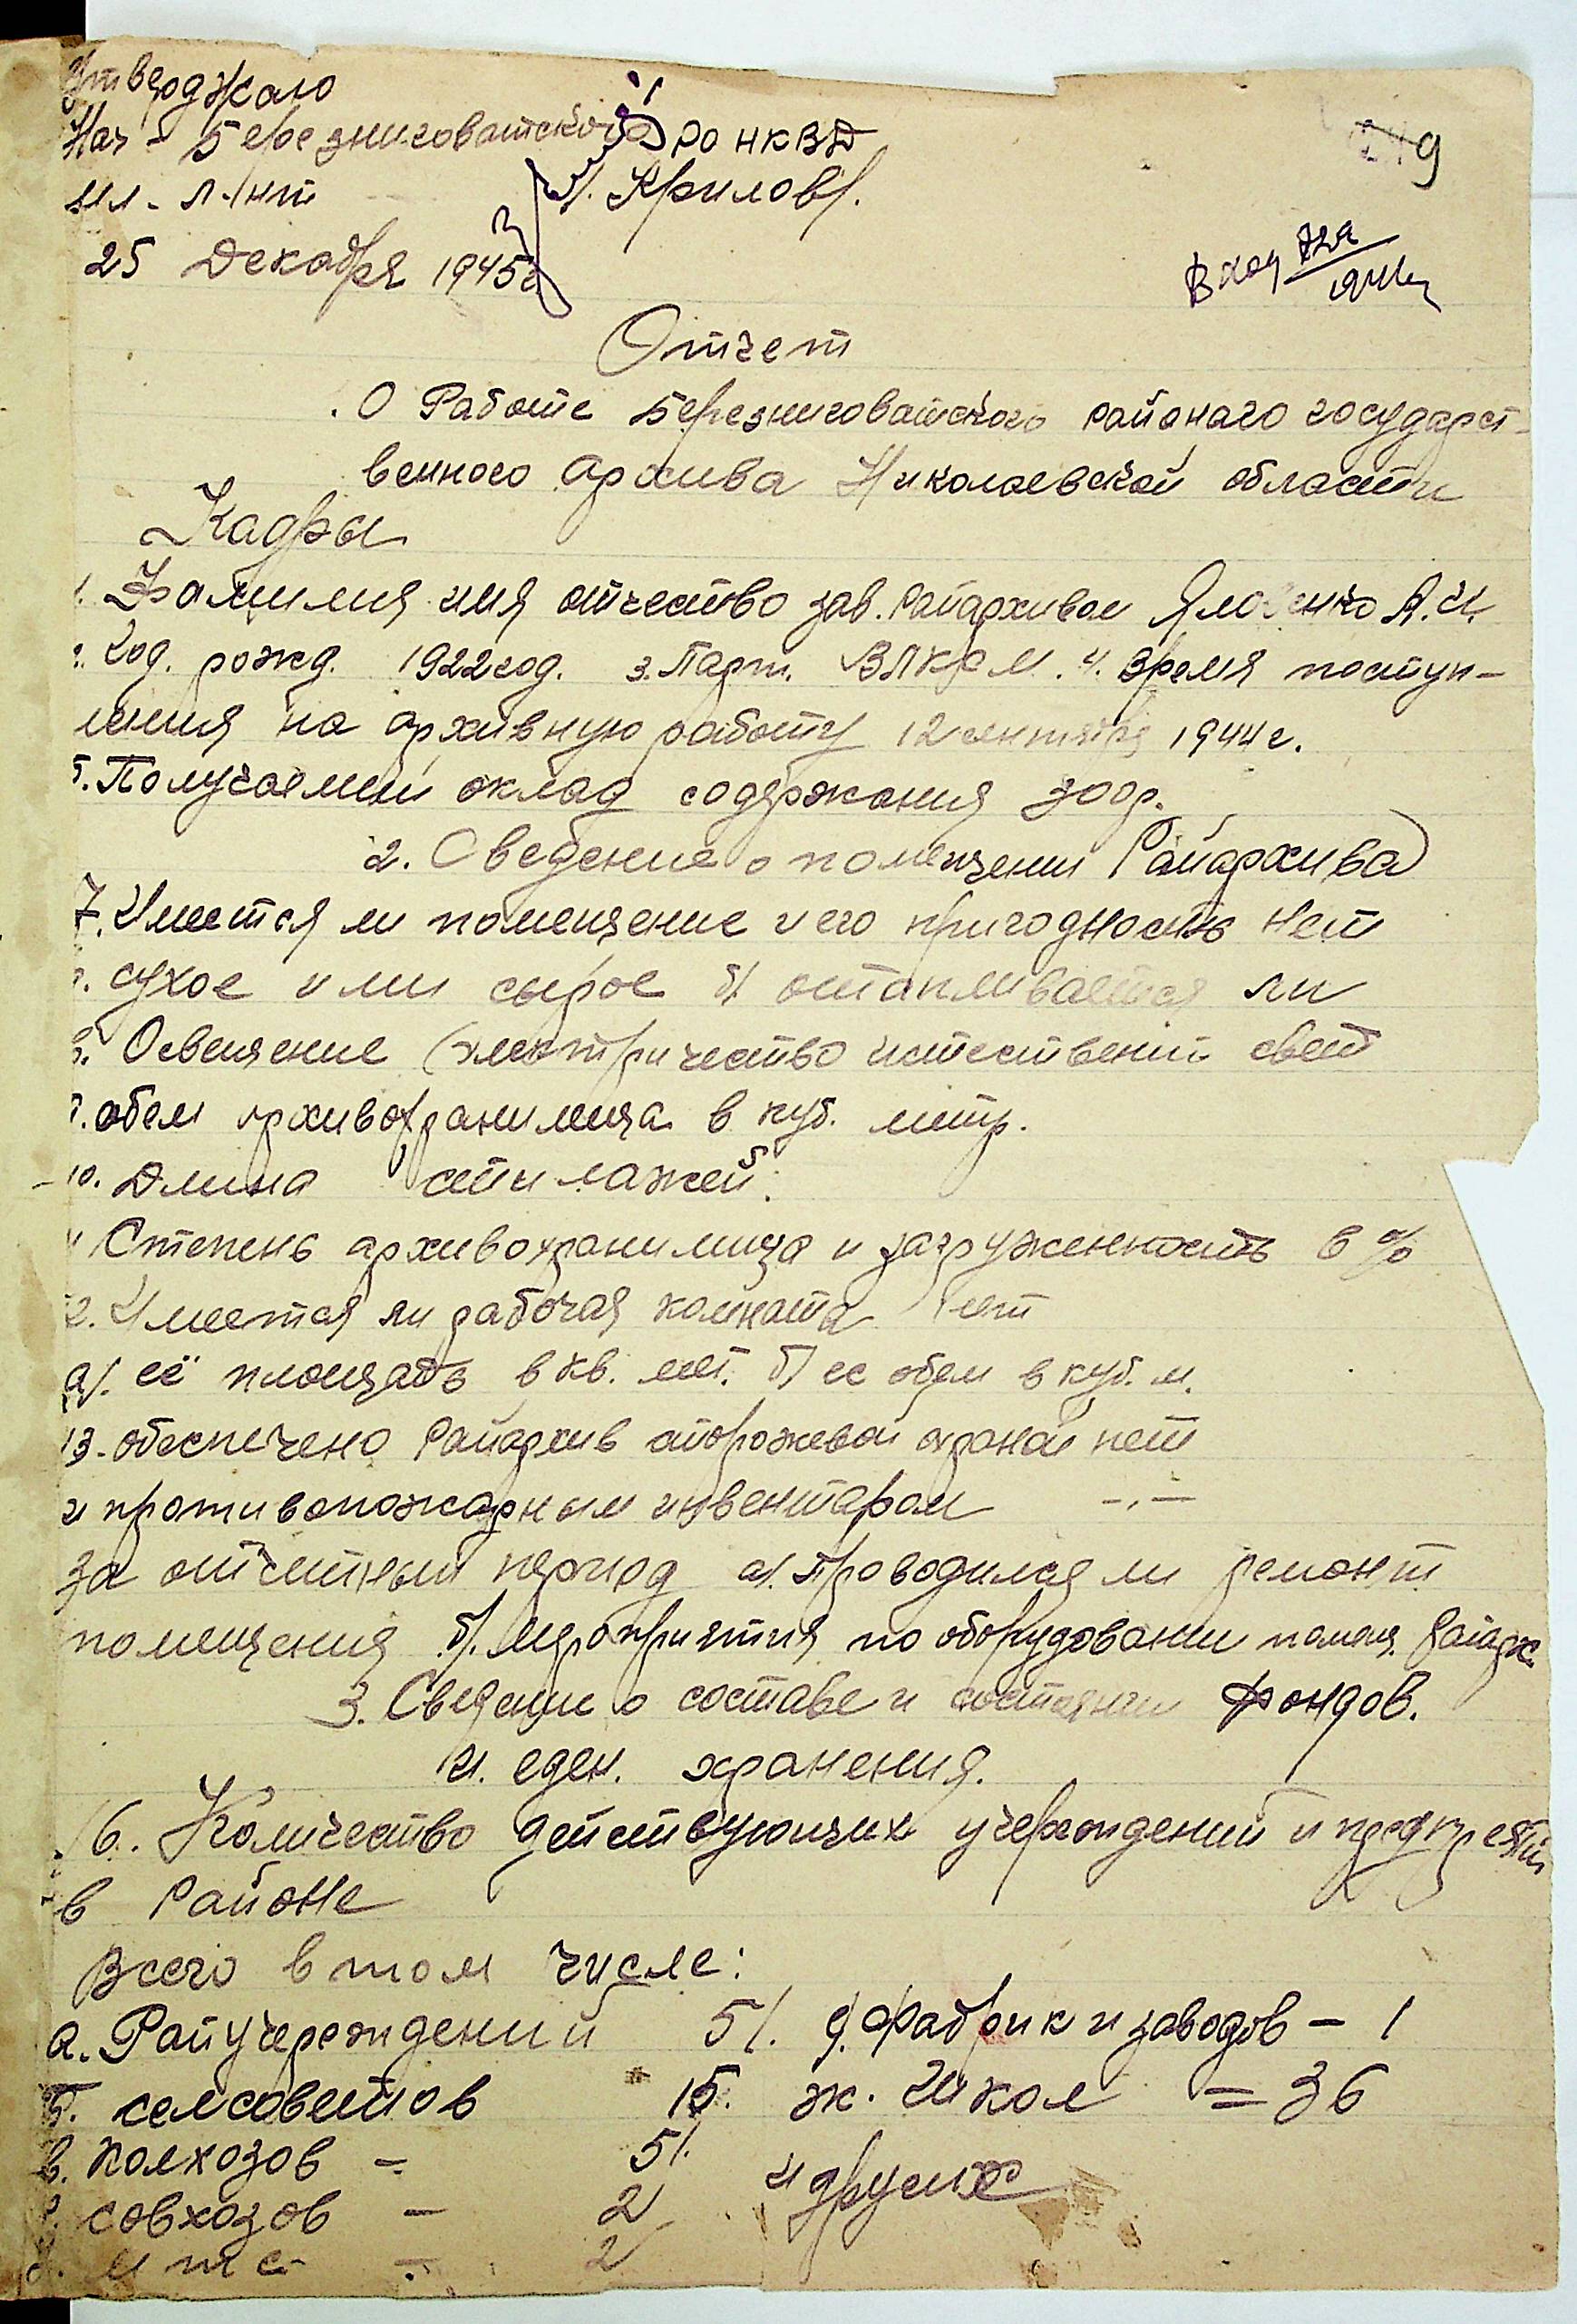 Утверджаю
Нач - Березниговатского РО НКВД
мл. л-нт /Крилов/.
25 Декабря 1945г
9
Вход 72а
Отчет
О Работе Березниговатского районаго государст-
венного архива Николаевской области
Кадры
1. Фамилия имя отчество зав. Райархивом Яловенко А.И.
2. Год. рожд. 1922год. 3. Парт. ВЛКСМ. 4. Время поступ-
ления на архивную работу 12 сентября 1944г.
5. Получаемый оклад содержания 300р.
2. Сведение о помещении Райархива
7. Имеется ли помещение и его пригодность нет
сухое или сырое б/ отапливается ли
8. Освещение (электричество истествений свет
9. обем архивохранилища в куб. метр.
10. Длина стилажей.
11 Степень архивохранилища и загруженность в %
12. Имеется ли рабочая комната нет
а/. её площадь в кв. мт. б/ ее обем в куб. м.
13. обеспечено Райархив сторожевой охраной нет
и противопожарным инвентаром -.-
за отчетный период а/. Проводился ли ремонт
помещения б/. мероприятия по оборудовании помещ. райарх.
3. Сведение о составе и состоянии фондов.
и. еден. хранения.
16. Количество действующих учереждений и предприятий
в Районе
Всего в том числе:
а. Райучереждений 51. е. Фабрик и заводов - 1
б. селсоветов 15. ж. Школ = 36
в. колхозов - 51. и другие
г. совхозов - 2
д. мтс - 2